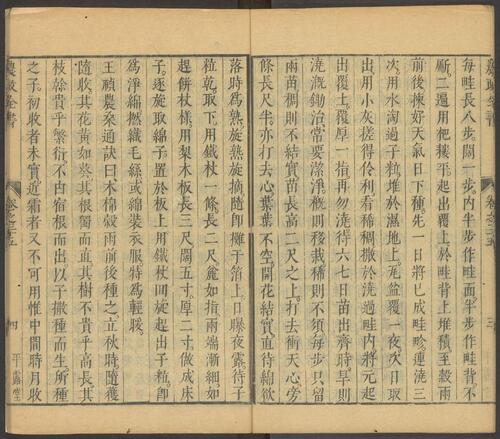 每畦長八步闊一步內半步作畦面半步作畦背
斸二遍用杷耬平起出覆土於畦背上堆積至穀雨
前後揀好天氣日下種先一日將已成畦畛連澆三
次用水淘過子粒堆於濕地上瓦盆覆一夜次日取
出用小灰搓得伶俐看稀稠撒於澆過畦內將元起
出覆土覆厚一指再勿澆待六七日苗出齊時旱則
澆漑鋤治常要潔淨穊則移栽稀則不須每步只留
兩苗稠則不結實苗長高二尺之上打去衝天心旁
條長尺半亦打去心葉葉不空開花結實直待綿欲
落時爲熟旋熟旋摘隨即攤于箔上日曝夜露待子
粒乾取下用鐵杖一條長二尺麄如指兩端漸細如
趕餅杖樣用梨木板長三尺闊五寸厚二寸做成床
子逐旋取綿子置於板上用鐵杖回旋趕出子粒即
爲淨綿撚織毛絲或綿裝衣服特爲輕䁔
王禎農桒通訣曰木棉穀雨前後種之立秋時隨穫
隨收其花黃如葵其根獨而直其樹不貴乎高長其
枝幹貴乎繁衍不由宿根而出以子撒種而生所種
之子初收者未實近霜者又不可用惟中間時月收
農政全書
卷之三十五
四
平露堂